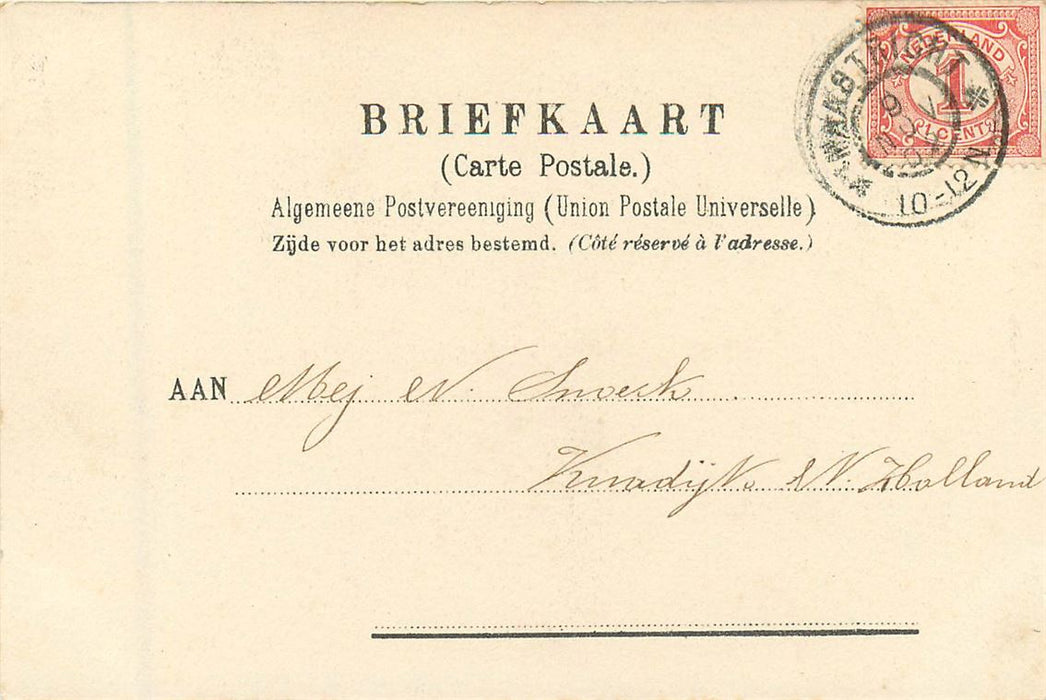 BRIEFKAART
(Carte Postale.)
Algemeene Postvereeniging (Union Postale Universelle)
Zijde voor het adres bestemd. (Côté réservé à l'adresse.)
NEDERLAND
1
1 CENT
MAASTRICHT
10-12 N
AAN Mej N. Snoeck
N. Holland